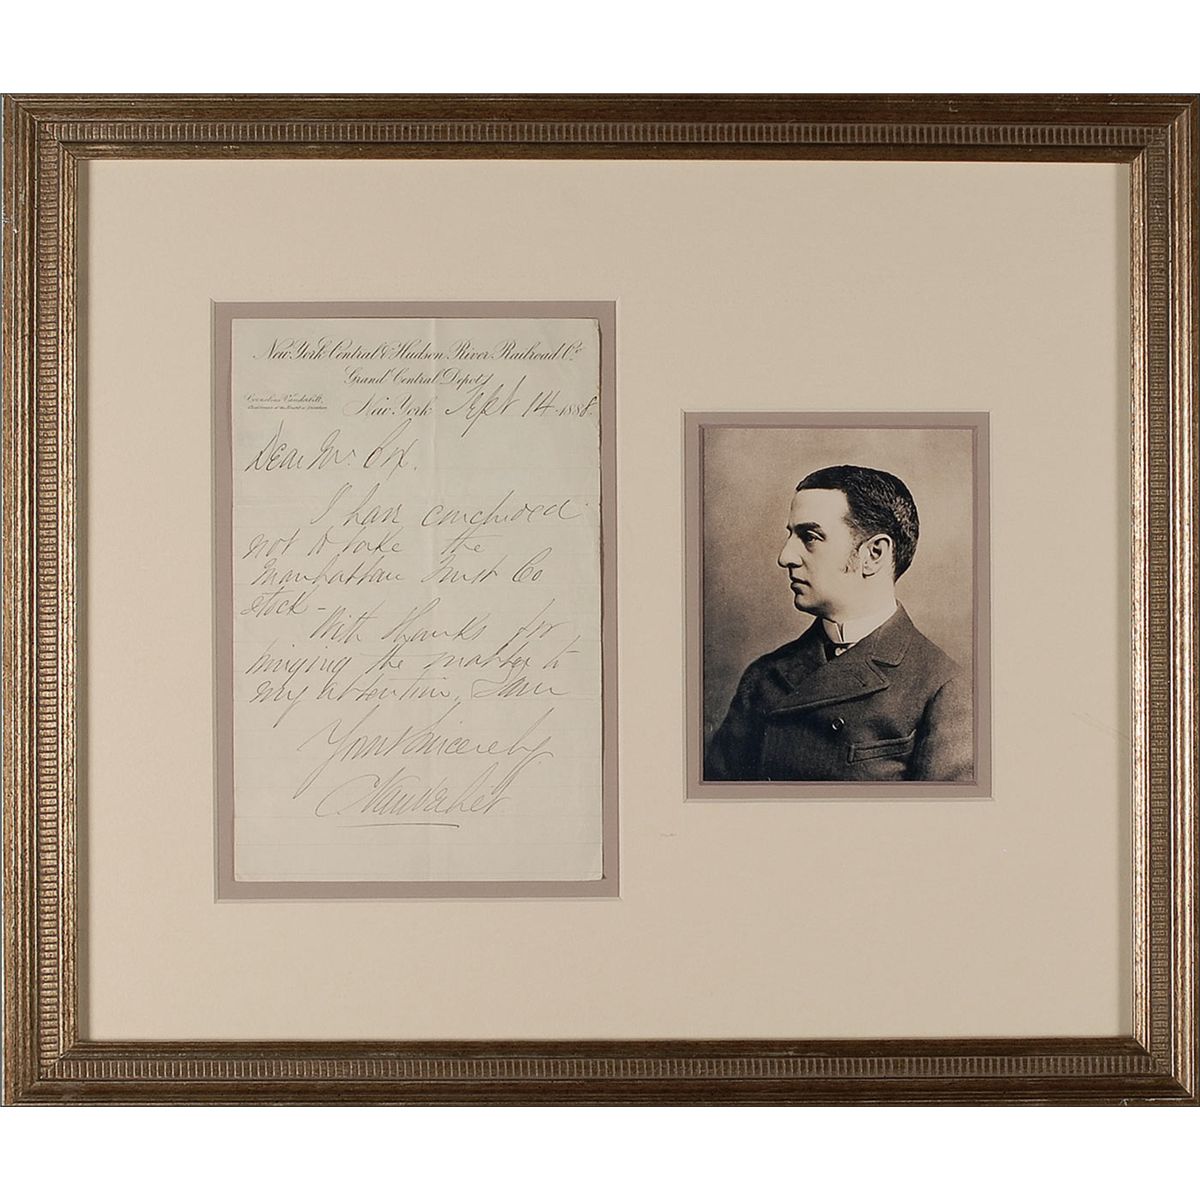 New York Central & Hudson River Railroad Co.
Grand Central Depot,
Cornelius Vanderbilt,
Chairman of the Board of Directors
New York, Sept 14 1888.
Dear Mr. Cox.
I have concluded
not to take the
Manhattan Trust Co
stock -
With thanks for
bringing the matter to
my attention, I am
Yours sincerely
C Vanderbilt